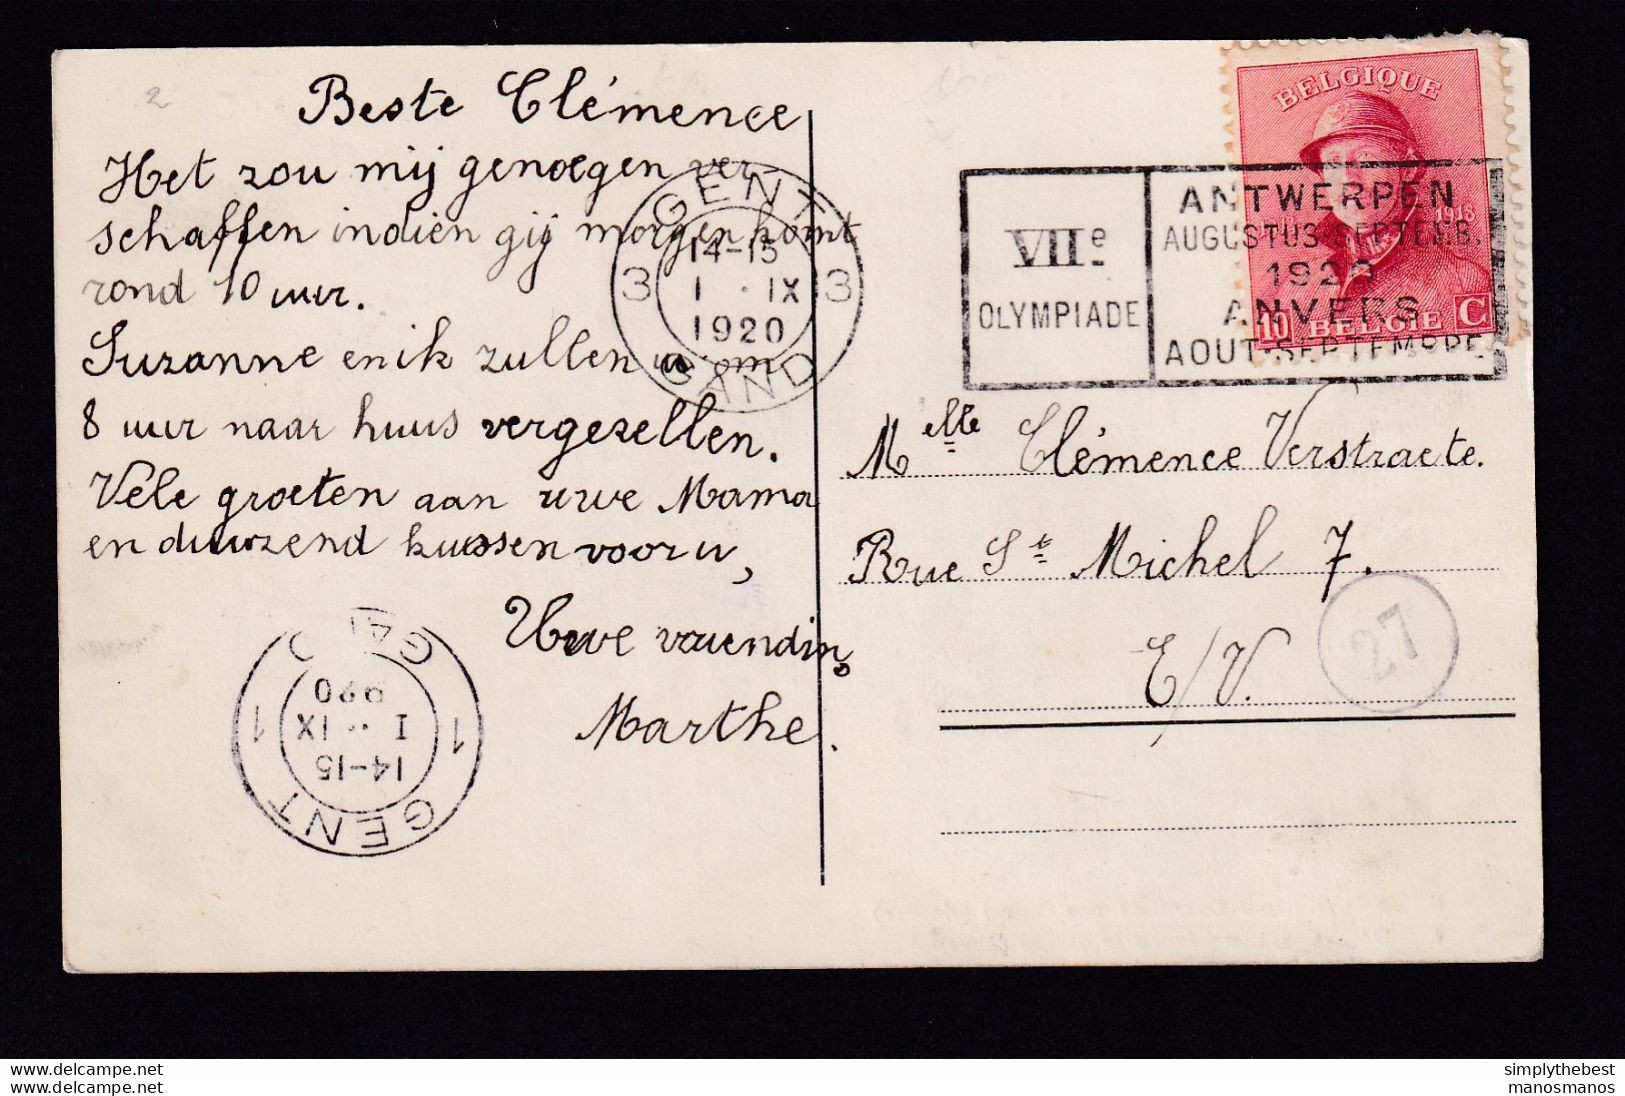 2
Beste Clémence,
Het zou mij genoegen ver-
schaffen indien gij morgen komt
rond 10 uur.
Suzanne en ik zullen u om
8 uur naar huus vergezellen.
Vele groeten aan uwe Mama
en duuzend kussen voor u,
Uwe vriendin,
Marthe.
GENT
3 14-15 3
1 · IX
1920
GAND
GENT
14-15
1 I · IX 1
920
GAND
VIIe
OLYMPIADE
ANTWERPEN
AUGUSTUS-SEPTEMB.
1920
ANVERS
AOUT-SEPTEMBRE
BELGIQUE
1918
10 BELGIË C
Melle Clémence Verstraete.
Rue St Michel 7.
E/V.
27
delcampe.net
delcampe.net
simplythebest
manosmanos